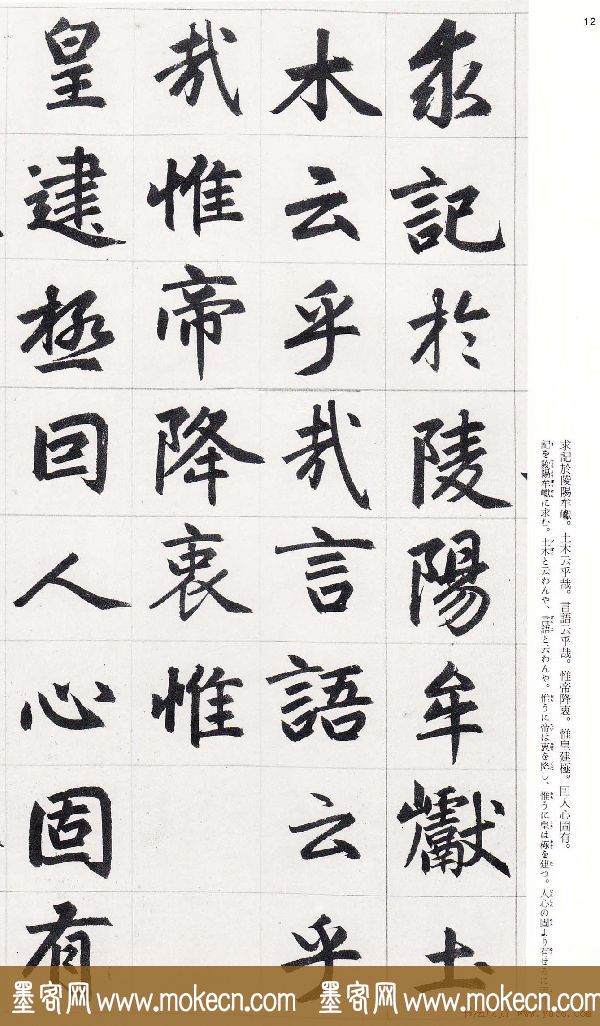 12
求記於陵陽牟巘土
木云乎哉言語云乎
哉惟帝降衷惟
皇建極囙人心固有
求記於陵陽牟巘。土木云乎哉。言語云乎哉。惟帝降衷。惟皇建極。囙人心固有。
記を陵陽牟巘に求む。土木と云わんや、言語と云わんや。惟うに帝は衷を降し、惟うに皇は極を建つ。人心の固より有せるに
墨客网 www.mokecn.com 墨客网 www.mokecn.com